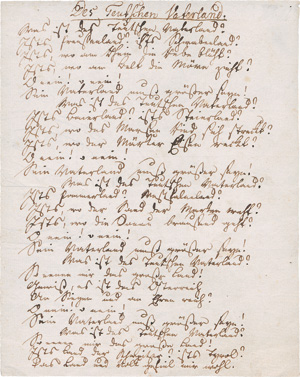 Des Teutschen Vaterland.
Was ist des Teutschen Vaterland?
Ists Preussenland? Ists Schwabenland?
Ists, wo am Rhein die Rebe blüht?
Ists, wo am Belt die Möve zieht?
O nein, o nein!
Sein Vaterland muß größer seyn!
Was ist des Teutschen Vaterland?
Ists Baierland? ists Steierland?
Ists, wo des Marsen Rind sich streckt?
Ists, wo der Märker Eisen reckt?
O nein, o nein!
Sein Vaterland muß größer seyn!
Was ist des Teutschen Vaterland?
Ists Pommerland? Westfalenland?
Ists, wo der Sand der weht?
Ists, wo die Donau brausend geht?
O nein, o nein!
Sein Vaterland muß größer seyn!
Was ist des Teutschen Vaterland?
So nenne mir das große Land!
Gewiß, es ist das Österreich
An Siegen und an Ehren reich?
O nein, o nein!
Sein Vaterland muß größer seyn!
Was ist des Teutschen Vaterland?
So nenne mir das große Land!
Ists Land der Schweitzer? ists Tyrol?
Das Land und Volk gefiel mir wohl.